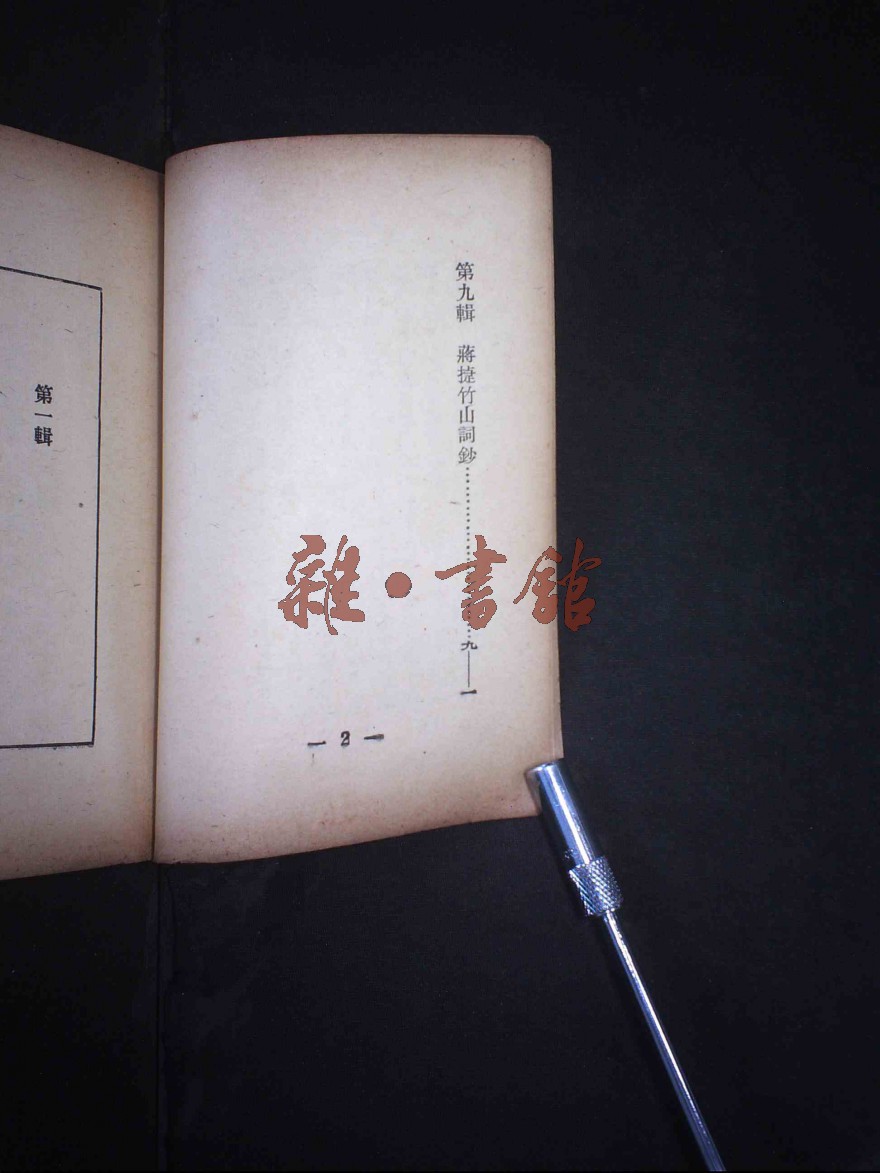 第九輯　蔣捷竹山詞鈔……………………九——一
— 2 —
第一輯
雜·書館